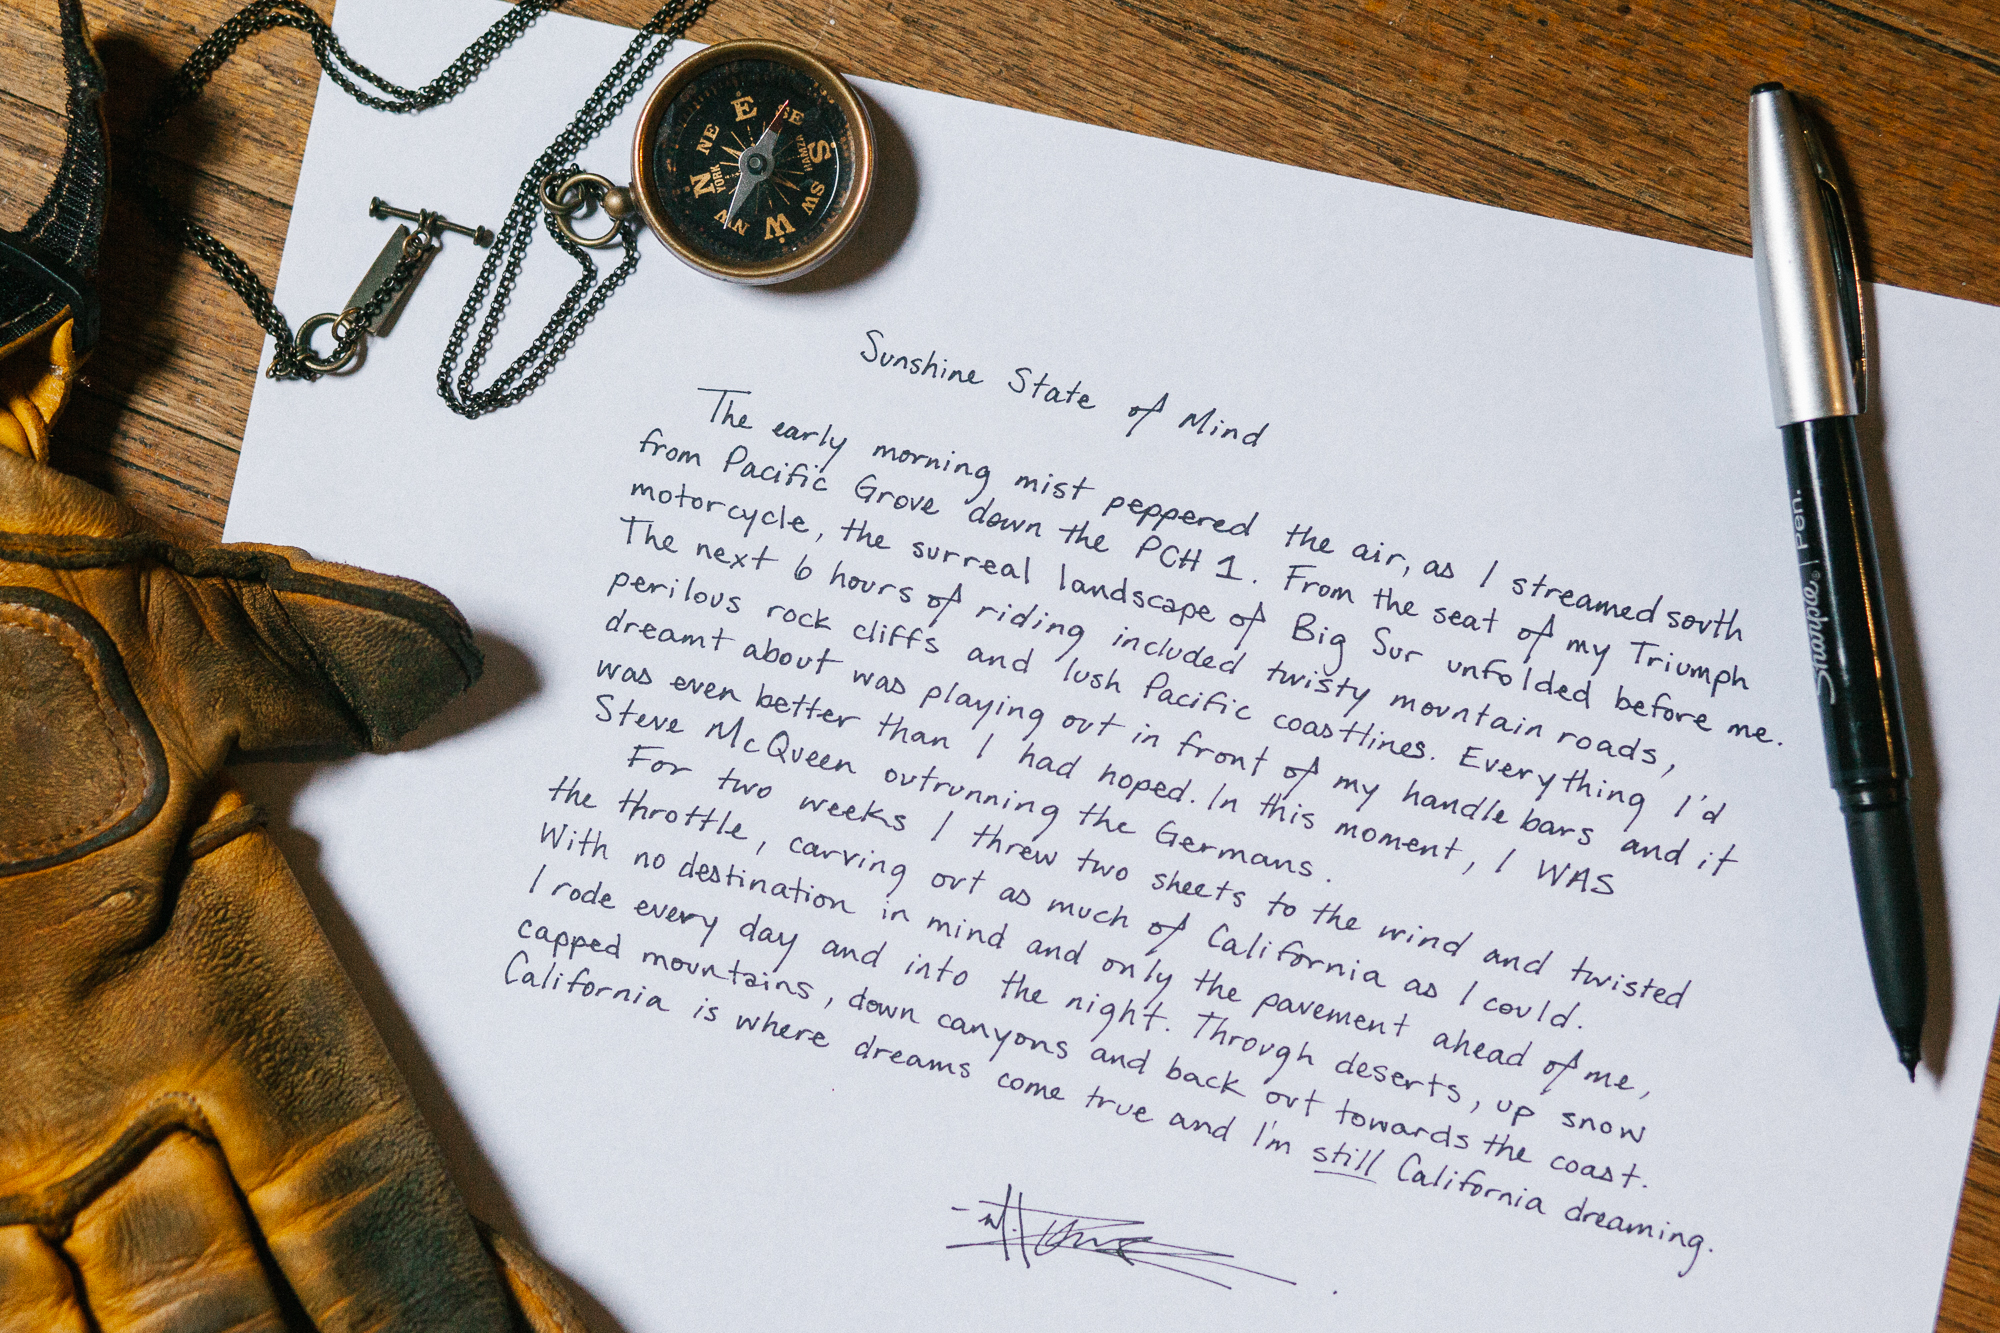 E
SE
S
SW
W
NW
N
NE
YORK
HAMZA
Sunshine State of Mind
The early morning mist peppered the air, as I streamed south
from Pacific Grove down the PCH 1. From the seat of my Triumph
motorcycle, the surreal landscape of Big Sur unfolded before me.
The next 6 hours of riding included twisty mountain roads,
perilous rock cliffs and lush Pacific coastlines. Everything I'd
dreamt about was playing out in front of my handle bars and it
was even better than I had hoped. In this moment, I WAS
Steve McQueen outrunning the Germans.
For two weeks I threw two sheets to the wind and twisted
the throttle, carving out as much of California as I could.
With no destination in mind and only the pavement ahead of me,
I rode every day and into the night. Through deserts, up snow
capped mountains, down canyons and back out towards the coast.
California is where dreams come true and I'm still California dreaming.
Sharpie. | Pen.